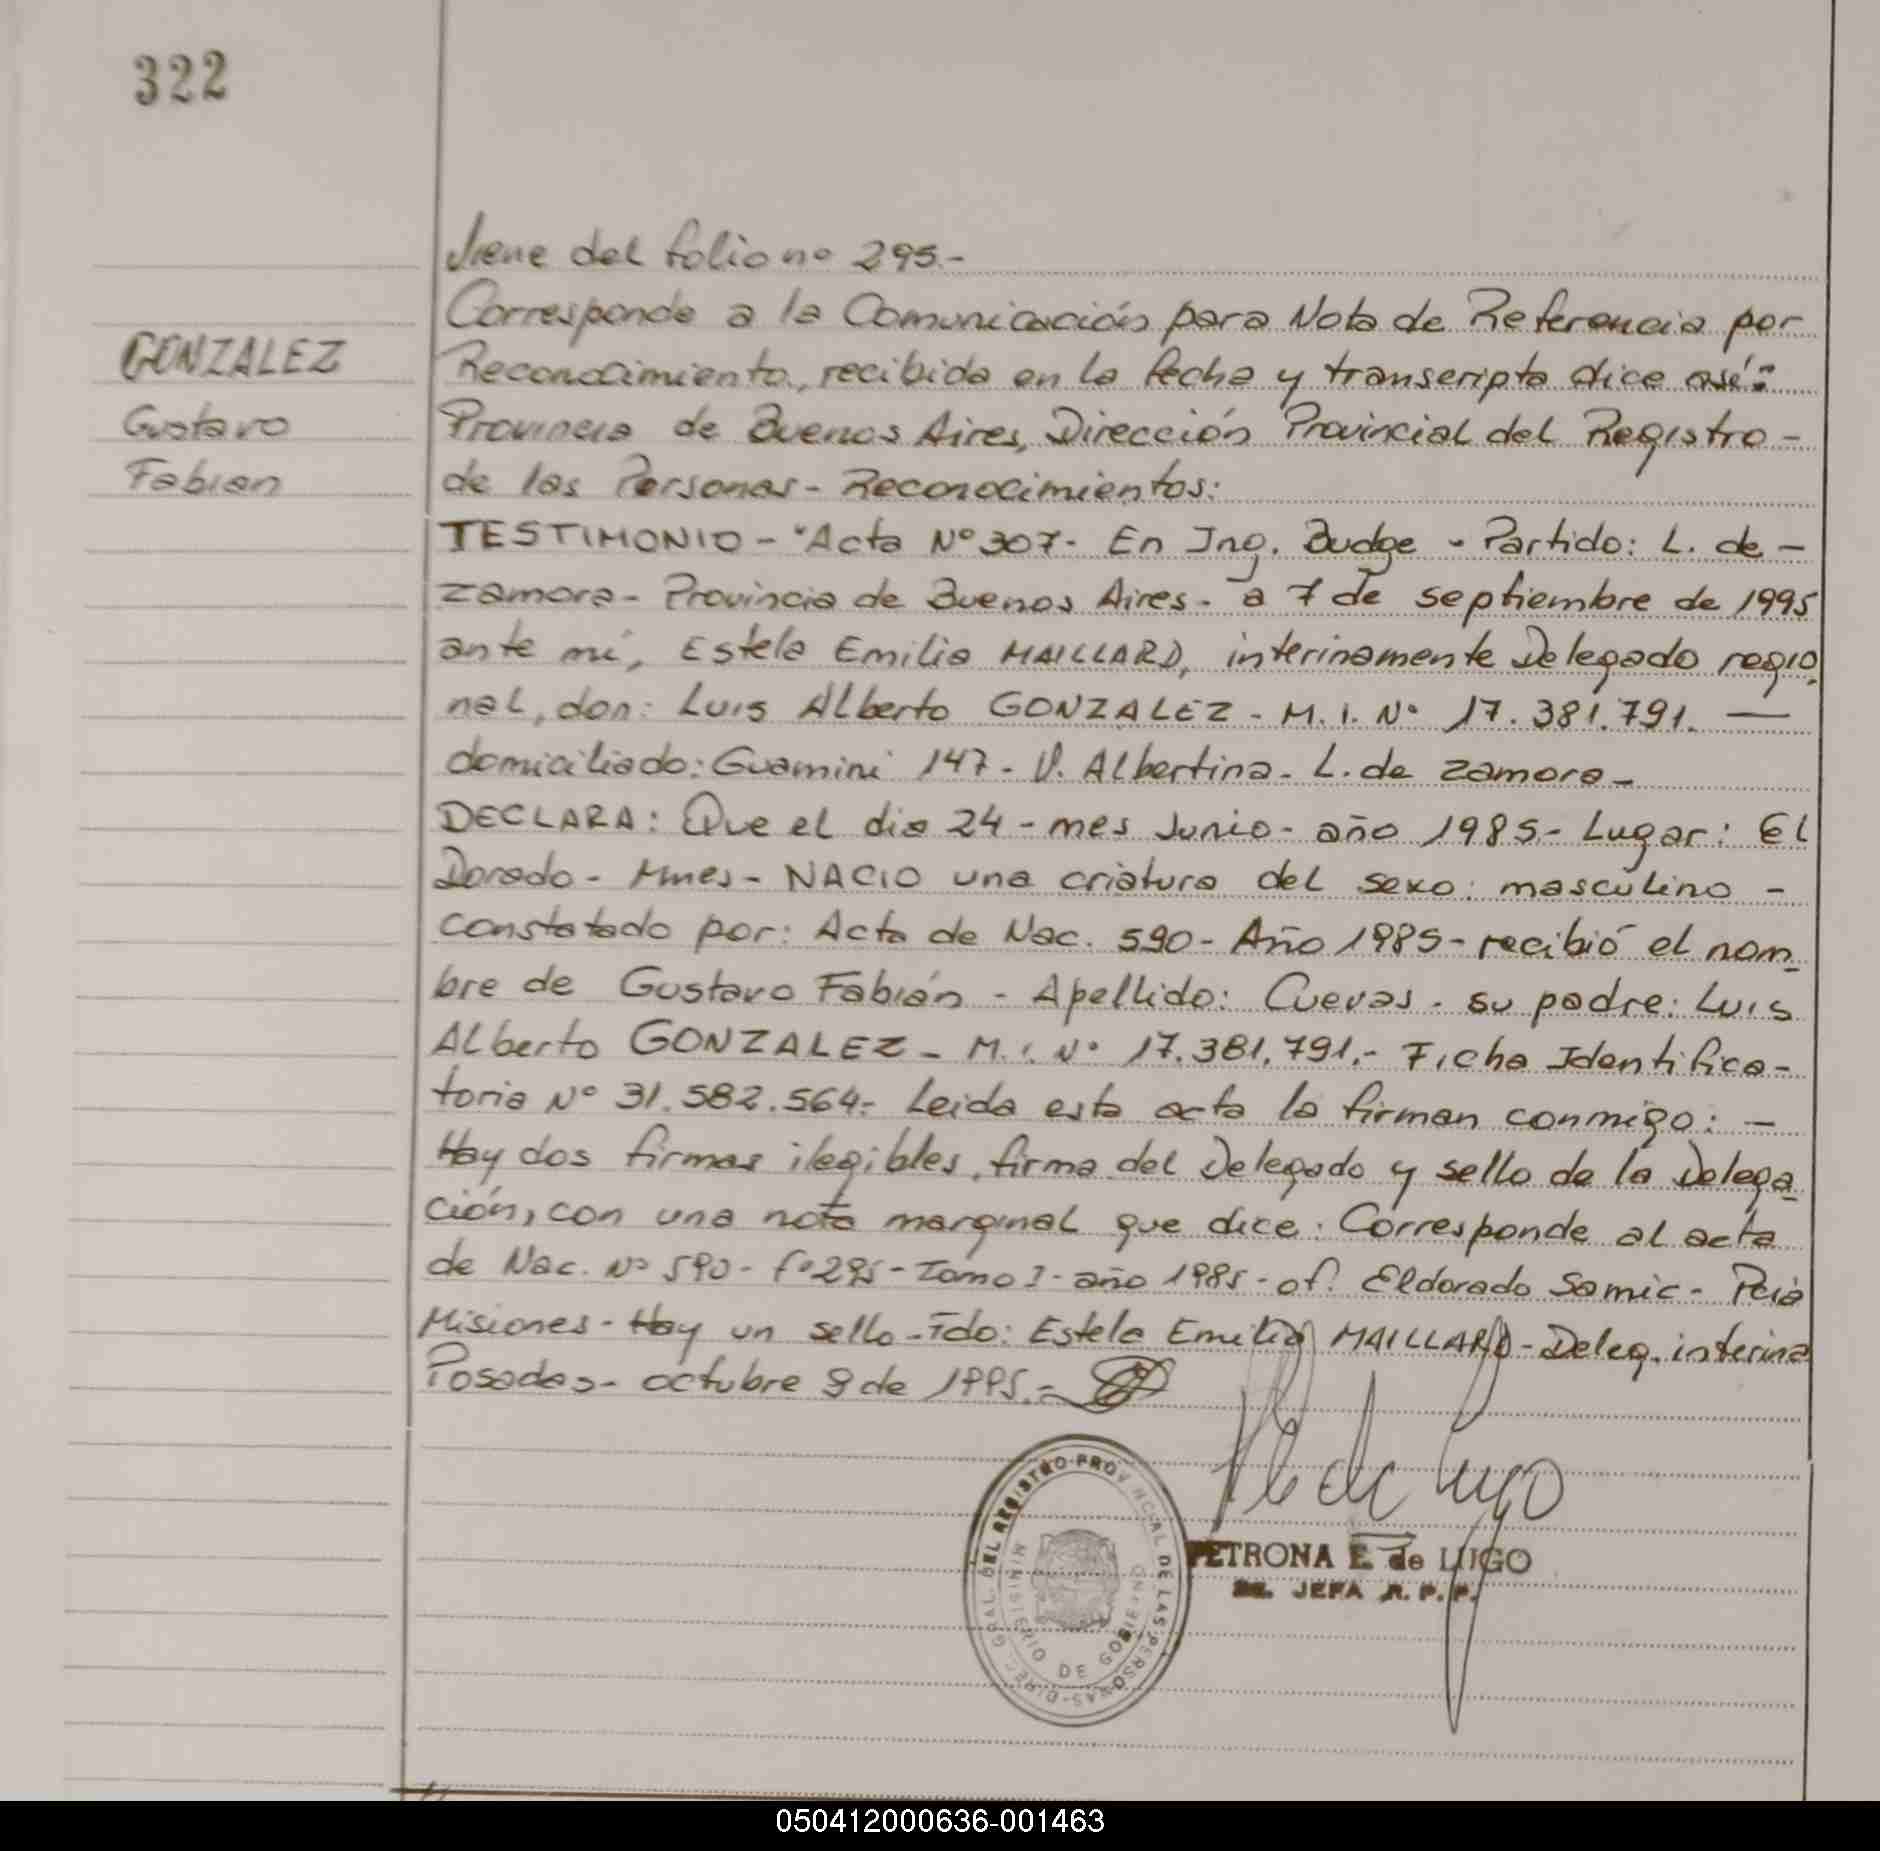 322
Viene del folio nº 295.-
Corresponde a la Comunicación para Nota de Referencia por
GONZALEZ
Reconocimiento, recibida en la fecha y transcripta dice así:
Gustavo
Provincia de Buenos Aires, Dirección Provincial del Registro -
Fabian
de las Personas - Reconocimientos:
TESTIMONIO - "Acta Nº 307- En Ing. Budge - Partido: L. de -
Zamora - Provincia de Buenos Aires - a 7 de septiembre de 1995
ante mí, Estela Emilia MAILLARD, interinamente Delegado regio
nal, don: Luis Alberto GONZALEZ - M.I. Nº 17.381.791. —
domiciliado: Guamini 147 - V. Albertina - L. de Zamora -
DECLARA: Que el dia 24 - mes Junio - año 1985.- Lugar: El
Dorado - Mnes - NACIO una criatura del sexo: masculino -
constatado por: Acta de Nac. 590 - Año 1985 - recibió el nom_
bre de Gustavo Fabián - Apellido: Cuevas - su padre: Luis
Alberto GONZALEZ - M.I. Nº 17.381.791.- Ficha Identifica-
toria Nº 31.582.564.- Leida esta acta la firman conmigo: —
Hay dos firmas ilegibles, firma del Delegado y sello de la Delega_
ción, con una nota marginal que dice: Corresponde al acta
de Nac. Nº 590 - fº 295 - Tomo I - año 1985 - of. Eldorado Samic - Pcia
Misiones - Hay un sello - Fdo: Estela Emilia MAILLARD - Deleg. interina
Posadas - octubre 9 de 1995.-
DIREC. GRAL. DEL REGISTRO PROVINCIAL DE LAS PERSONAS
MINISTERIO DE GOBIERNO
PETRONA E. de LUGO
JEFA R.P.P.
050412000636-001463